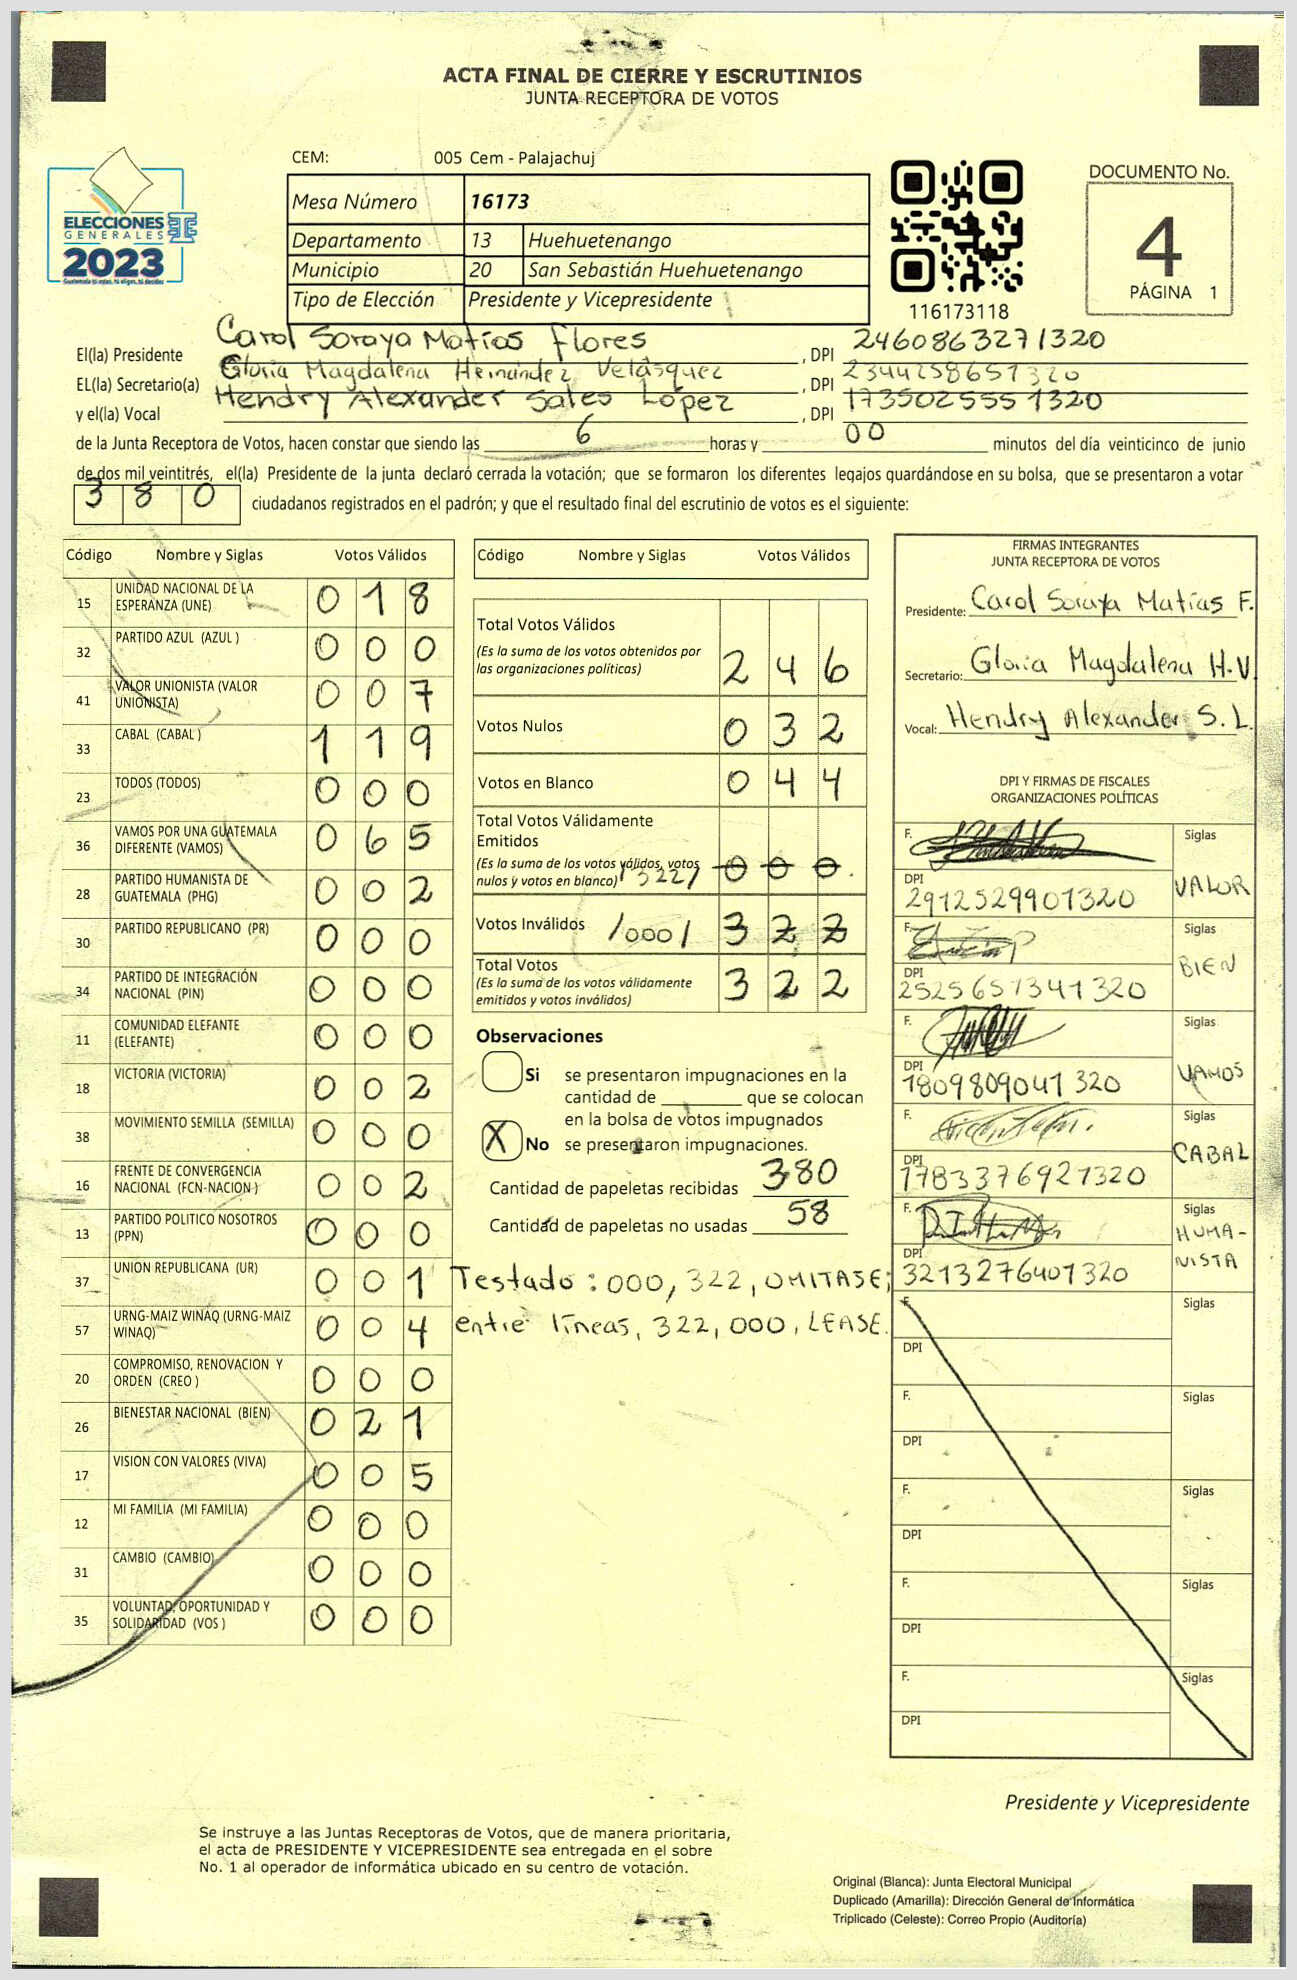 ACTA FINAL DE CIERRE Y ESCRUTINIOS
JUNTA RECEPTORA DE VOTOS
ELECCIONES
GENERALES
2023
CEM: 005 Cem - Palajachuj
Mesa Número 16173
Departamento 13 Huehuetenango
Municipio 20 San Sebastián Huehuetenango
Tipo de Elección Presidente y Vicepresidente
116173118
DOCUMENTO No.
4
PÁGINA 1
El(la) Presidente Carol Soraya Matías Flores, DPI 2460863271320
EL(la) Secretario(a) Gloria Magdalena Hernández Velásquez, DPI 2344258651320
y el(la) Vocal Hendry Alexander Sales López, DPI 1735025551320
de la Junta Receptora de Votos, hacen constar que siendo las 6 horas y 00 minutos del día veinticinco de junio
de dos mil veintitrés, el(la) Presidente de la junta declaró cerrada la votación; que se formaron los diferentes legajos guardándose en su bolsa, que se presentaron a votar
380 ciudadanos registrados en el padrón; y que el resultado final del escrutinio de votos es el siguiente:
Código Nombre y Siglas Votos Válidos
15 UNIDAD NACIONAL DE LA ESPERANZA (UNE) 018
32 PARTIDO AZUL (AZUL ) 000
41 VALOR UNIONISTA (VALOR UNIONISTA) 007
33 CABAL (CABAL ) 119
23 TODOS (TODOS) 000
36 VAMOS POR UNA GUATEMALA DIFERENTE (VAMOS) 065
28 PARTIDO HUMANISTA DE GUATEMALA (PHG) 002
30 PARTIDO REPUBLICANO (PR) 000
34 PARTIDO DE INTEGRACIÓN NACIONAL (PIN) 000
11 COMUNIDAD ELEFANTE (ELEFANTE) 000
18 VICTORIA (VICTORIA) 002
38 MOVIMIENTO SEMILLA (SEMILLA) 000
16 FRENTE DE CONVERGENCIA NACIONAL (FCN-NACION ) 002
13 PARTIDO POLITICO NOSOTROS (PPN) 000
37 UNION REPUBLICANA (UR) 001
57 URNG-MAIZ WINAQ (URNG-MAIZ WINAQ) 004
20 COMPROMISO, RENOVACION Y ORDEN (CREO ) 000
26 BIENESTAR NACIONAL (BIEN) 021
17 VISION CON VALORES (VIVA) 005
12 MI FAMILIA (MI FAMILIA) 000
31 CAMBIO (CAMBIO) 000
35 VOLUNTAD, OPORTUNIDAD Y SOLIDARIDAD (VOS ) 000
Código Nombre y Siglas Votos Válidos
Total Votos Válidos
(Es la suma de los votos obtenidos por
las organizaciones politicas) 246
Votos Nulos 032
Votos en Blanco 044
Total Votos Válidamente
Emitidos
(Es la suma de los votos válidos, votos
nulos y votos en blanco) /322/ 000.
Votos Inválidos /000/ 322
Total Votos
(Es la suma de los votos válidamente
emitidos y votos inválidos) 322
Observaciones
Si se presentaron impugnaciones en la
cantidad de que se colocan
en la bolsa de votos impugnados
X No se presentaron impugnaciones.
Cantidad de papeletas recibidas 380
Cantidad de papeletas no usadas 58
Testado: 000, 322, OMITASE;
entre líneas, 322, 000, LEASE.
FIRMAS INTEGRANTES
JUNTA RECEPTORA DE VOTOS
Presidente: Carol Soraya Matías F.
Secretario: Gloria Magdalena H.V
Vocal: Hendry Alexander S. L.
DPI Y FIRMAS DE FISCALES
ORGANIZACIONES POLÍTICAS
F. Siglas
DPI 2912529901320 VALOR
F. Siglas
DPI 2525651341320 BIEN
F. Siglas
DPI 1809809041320 VAMOS
F. Siglas
DPI 1783376921320 CABAL
F. Siglas
DPI 3213276401320 HUMA-
NISTA
F. Siglas
DPI
F. Siglas
DPI
F. Siglas
DPI
F. Siglas
DPI
F. Siglas
DPI
Presidente y Vicepresidente
Se instruye a las Juntas Receptoras de Votos, que de manera prioritaria,
el acta de PRESIDENTE Y VICEPRESIDENTE sea entregada en el sobre
No. 1 al operador de informática ubicado en su centro de votación.
Original (Blanca): Junta Electoral Municipal
Duplicado (Amarilla): Dirección General de Informática
Triplicado (Celeste): Correo Propio (Auditoría)